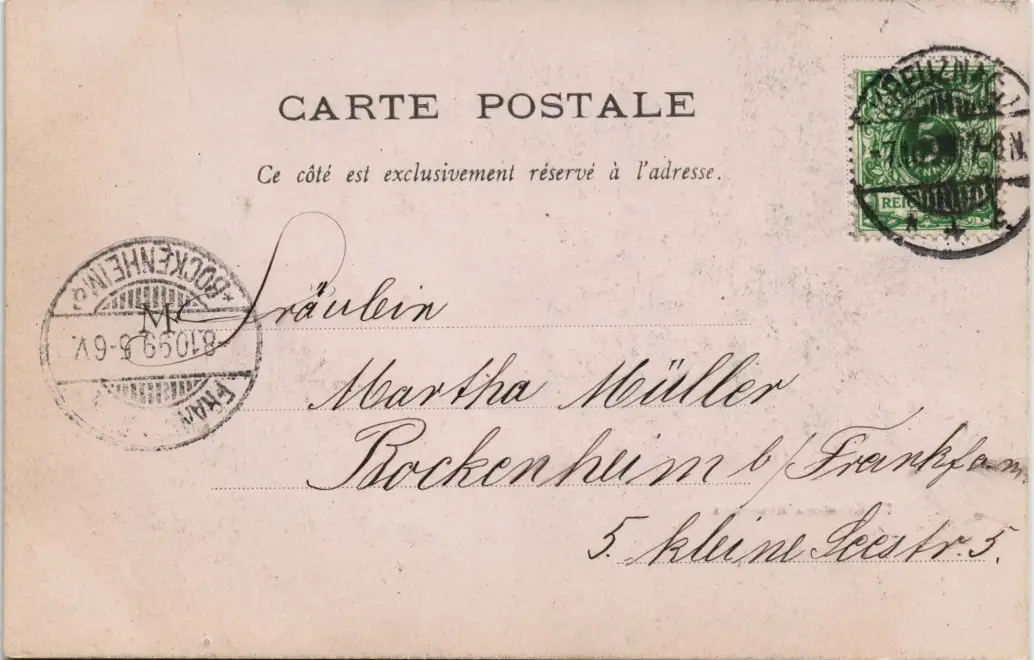 CARTE POSTALE
Ce côté est exclusivement réservé à l'adresse.
KREUZNACH
7-8N.
5
REICHSPOST
M
Fräulein
Martha Müller
Bockenheim b/Frankf a. m.
5. kleine Seestr. 5.
*BOCKENHEIM*
8.10.99 5-6V.
FRAN